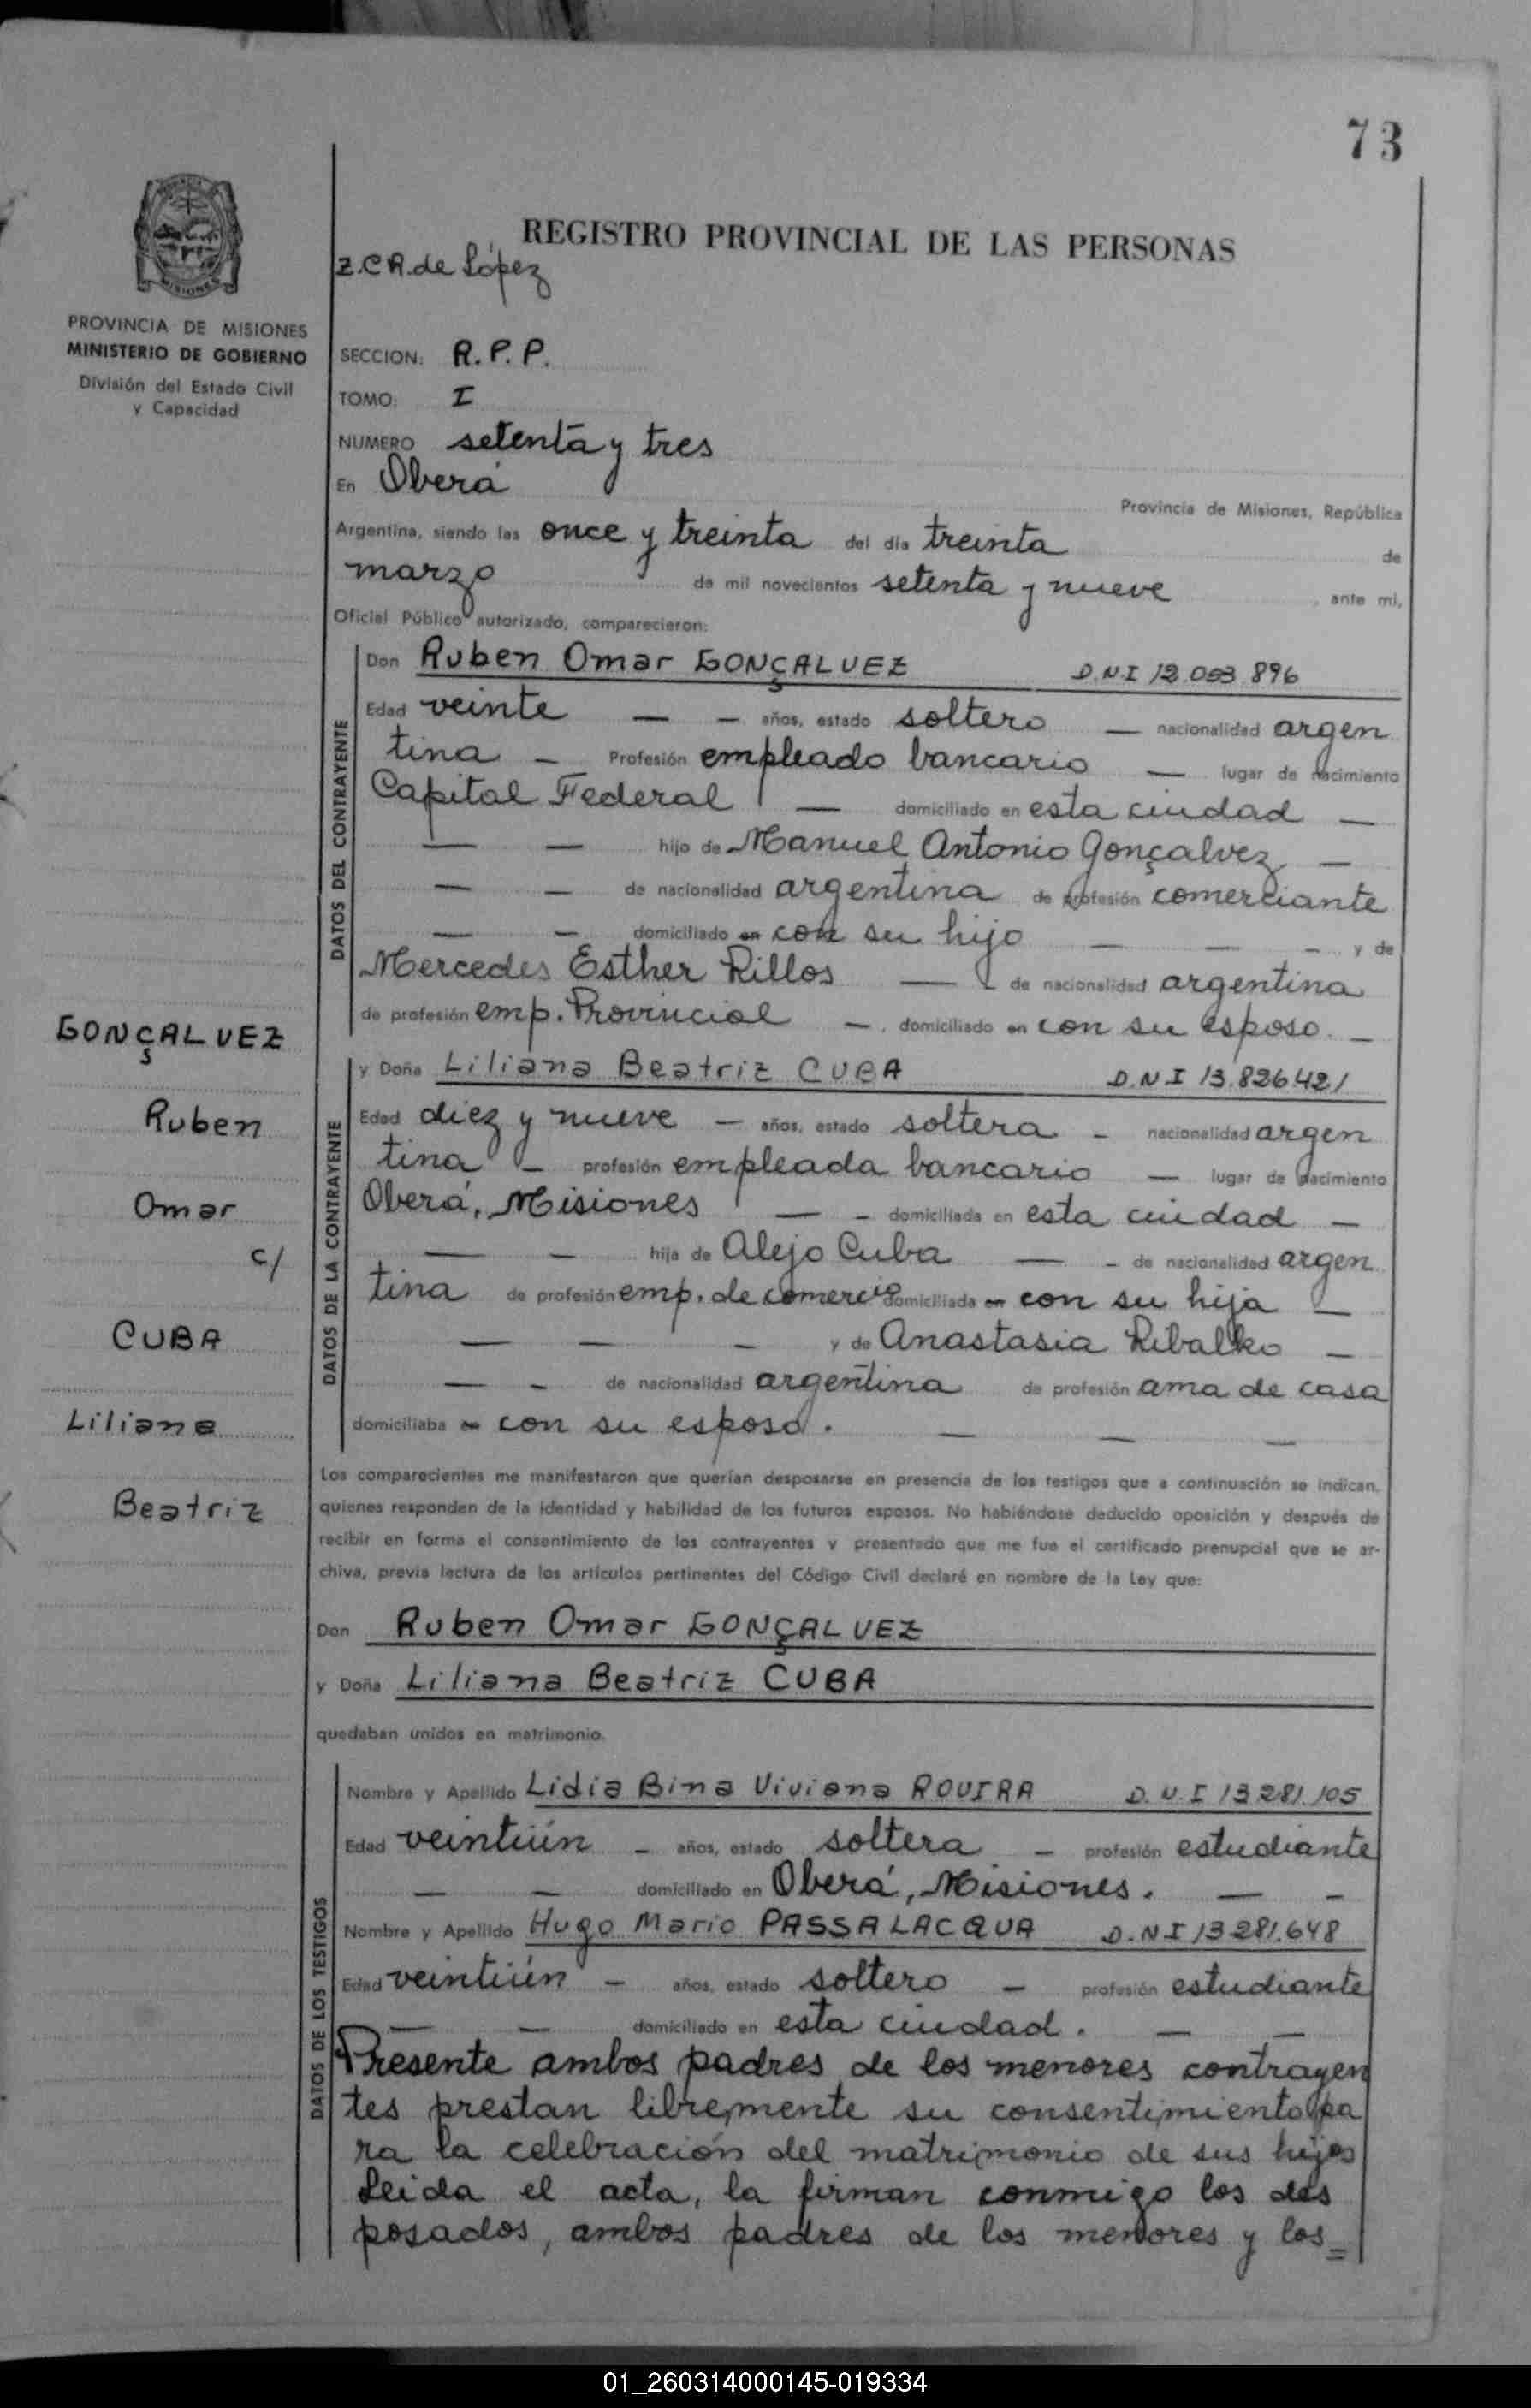 73
REGISTRO PROVINCIAL DE LAS PERSONAS
Z.C.A. de López
MISIONES
PROVINCIA DE MISIONES
MINISTERIO DE GOBIERNO
División del Estado Civil
y Capacidad
SECCION: R.P.P.
TOMO: I
NUMERO setenta y tres
En Oberá
Provincia de Misiones, República
Argentina, siendo las once y treinta del día treinta de
marzo de mil novecientos setenta y nueve, ante mi,
Oficial Público autorizado, comparecieron:
DATOS DEL CONTRAYENTE
Don Ruben Omar GONÇALVEZ D.N.I
Edad veinte — — años, estado soltero — nacionalidad argen
tina — Profesión empleado bancario — lugar de nacimiento
Capital Federal — domiciliado en esta ciudad —
— — hijo de Manuel Antonio Gonçalvez —
— — de nacionalidad argentina de profesión comerciante
— — domiciliado en con su hijo — — — y de
Mercedes Esther Rillos — de nacionalidad argentina
de profesión emp. Provincial — domiciliado en con su esposo. —
GONÇALVEZ
Ruben
Omar
c/
CUBA
Liliana
Beatriz
DATOS DE LA CONTRAYENTE
y Doña Liliana Beatriz CUBA D.N.I 13.826.421
Edad diez y nueve — años, estado soltera — nacionalidad argen
tina — profesión empleada bancario — lugar de nacimiento
Oberá, Misiones — — domiciliada en esta ciudad —
— — hija de Alejo Cuba — — de nacionalidad argen
tina de profesión emp. de comercio domiciliada en con su hija —
— — — y de Anastasia Ribalko —
— — de nacionalidad argentina de profesión ama de casa
domiciliaba en con su esposo. — — —
Los comparecientes me manifestaron que querían desposarse en presencia de los testigos que a continuación se indican,
quienes responden de la identidad y habilidad de los futuros esposos. No habiéndose deducido oposición y después de
recibir en forma el consentimiento de los contrayentes y presentado que me fue el certificado prenupcial que se ar-
chiva, previa lectura de los artículos pertinentes del Código Civil declaré en nombre de la Ley que:
Don Ruben Omar GONÇALVEZ
y Doña Liliana Beatriz CUBA
quedaban unidos en matrimonio.
DATOS DE LOS TESTIGOS
Nombre y Apellido Lidia Bina Viviana ROVIRA D.N.I 13281.105
Edad veintiún — años, estado soltera — profesión estudiante
— — domiciliado en Oberá, Misiones. — —
Nombre y Apellido Hugo Mario PASSALACQUA D.N.I 13281.648
Edad veintiún — años, estado soltero — profesión estudiante
— — domiciliado en esta ciudad. — —
Presente ambos padres de los menores contrayen
tes prestan libremente su consentimiento pa
ra la celebración del matrimonio de sus hijos
Leida el acta, la firman conmigo los des
posados, ambos padres de los menores y los=
01_260314000145-019334